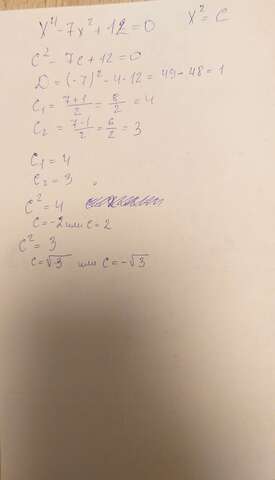 x⁴-7x²+12=0 x²=c
c²-7c+12=0
D=(-7)²-4·12=49-48=1
c₁=\frac{7+1}{2}=\frac{8}{2}=4
c₂=\frac{7-1}{2}=\frac{6}{2}=3
c₁=4
c₂=3
c²=4
c=-2 или c=2
c²=3
c=√3 или c=-√3